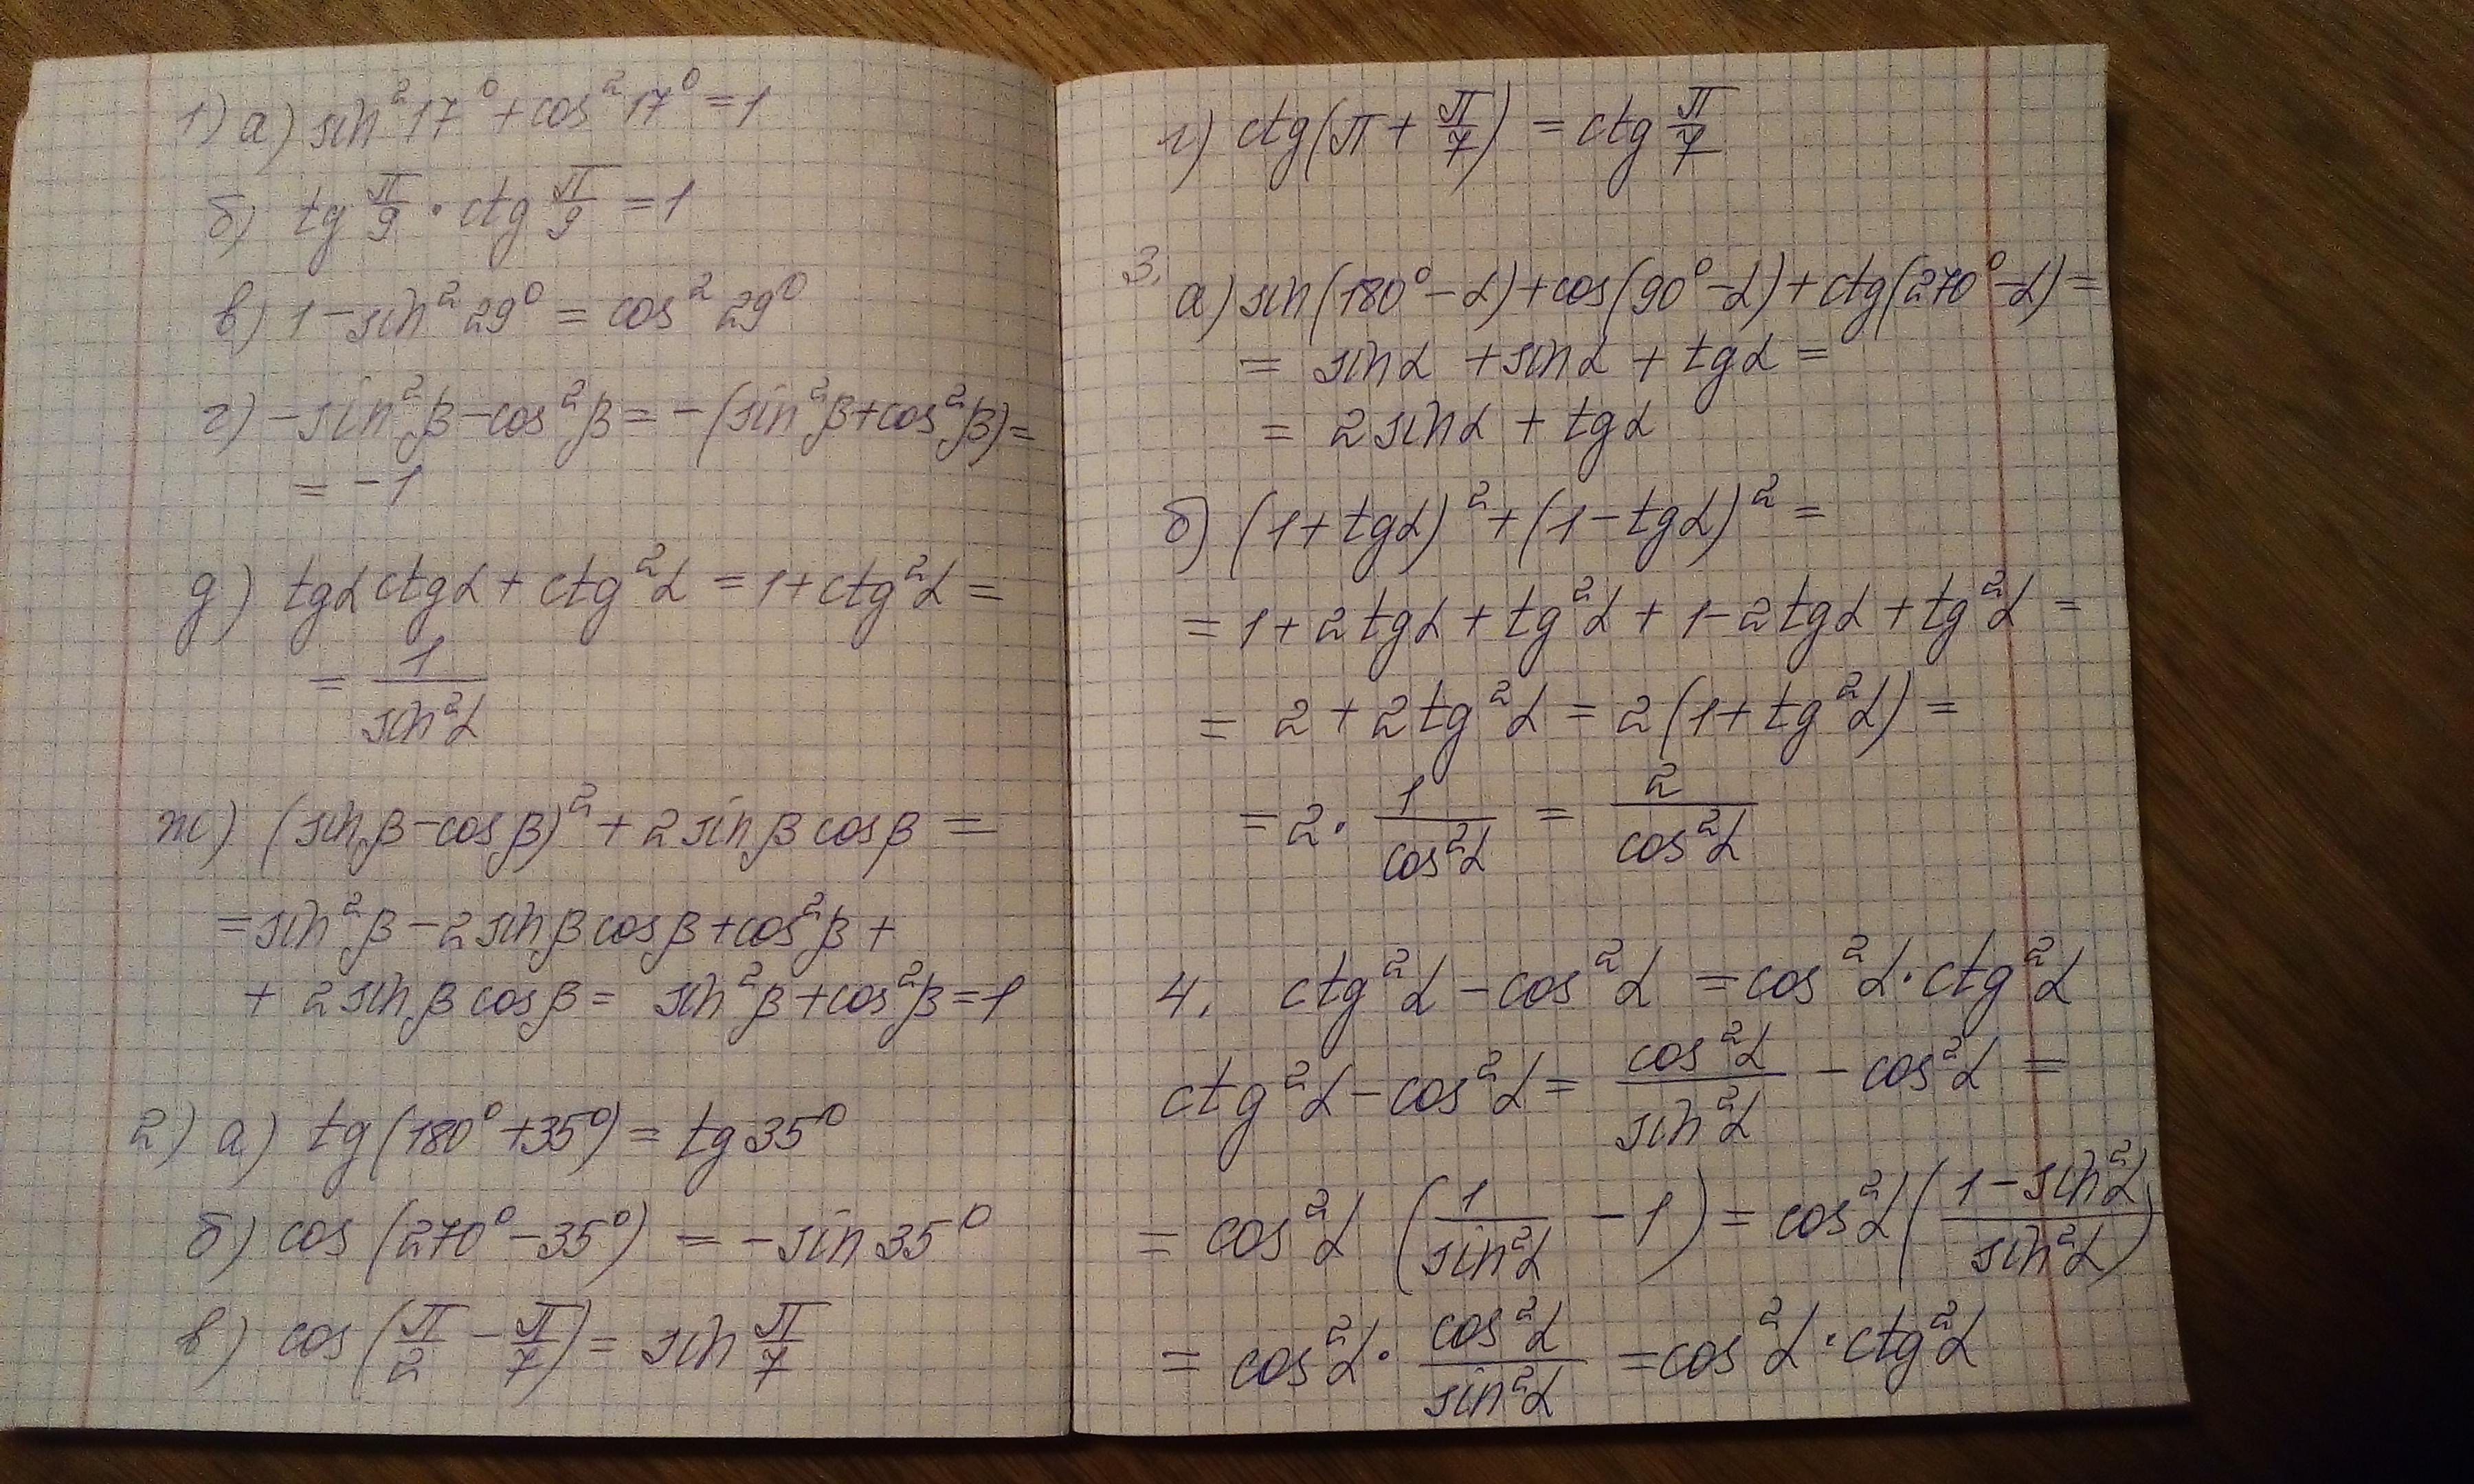 1) а) sin² 17° + cos² 17° = 1
б) tg π/9 · ctg π/9 = 1
в) 1 - sin² 29° = cos² 29°
г) - sin² β - cos² β = - (sin² β + cos² β) =
= -1
д) tgα ctgα + ctg² α = 1 + ctg² α =
= 1/sin² α
ж) (sin β - cos β)² + 2 sin β cos β =
= sin² β - 2 sin β cos β + cos² β +
+ 2 sin β cos β = sin² β + cos² β = 1
2) а) tg (180° + 35°) = tg 35°
б) cos (270° - 35°) = - sin 35°
в) cos (π/2 - π/7) = sin π/7
г) ctg (π + π/7) = ctg π/7
3. а) sin (180° - α) + cos (90° - α) + ctg (270° - α) =
= sin α + sin α + tg α =
= 2 sin α + tg α
б) (1 + tgα)² + (1 - tgα)² =
= 1 + 2 tgα + tg² α + 1 - 2 tgα + tg² α =
= 2 + 2 tg² α = 2 (1 + tg² α) =
= 2 · 1/cos² α = 2/cos² α
4. ctg² α - cos² α = cos² α · ctg² α
ctg² α - cos² α = cos² α/sin² α - cos² α =
= cos² α (1/sin² α - 1) = cos² α (1 - sin² α/sin² α)
= cos² α · cos² α/sin² α = cos² α · ctg² α